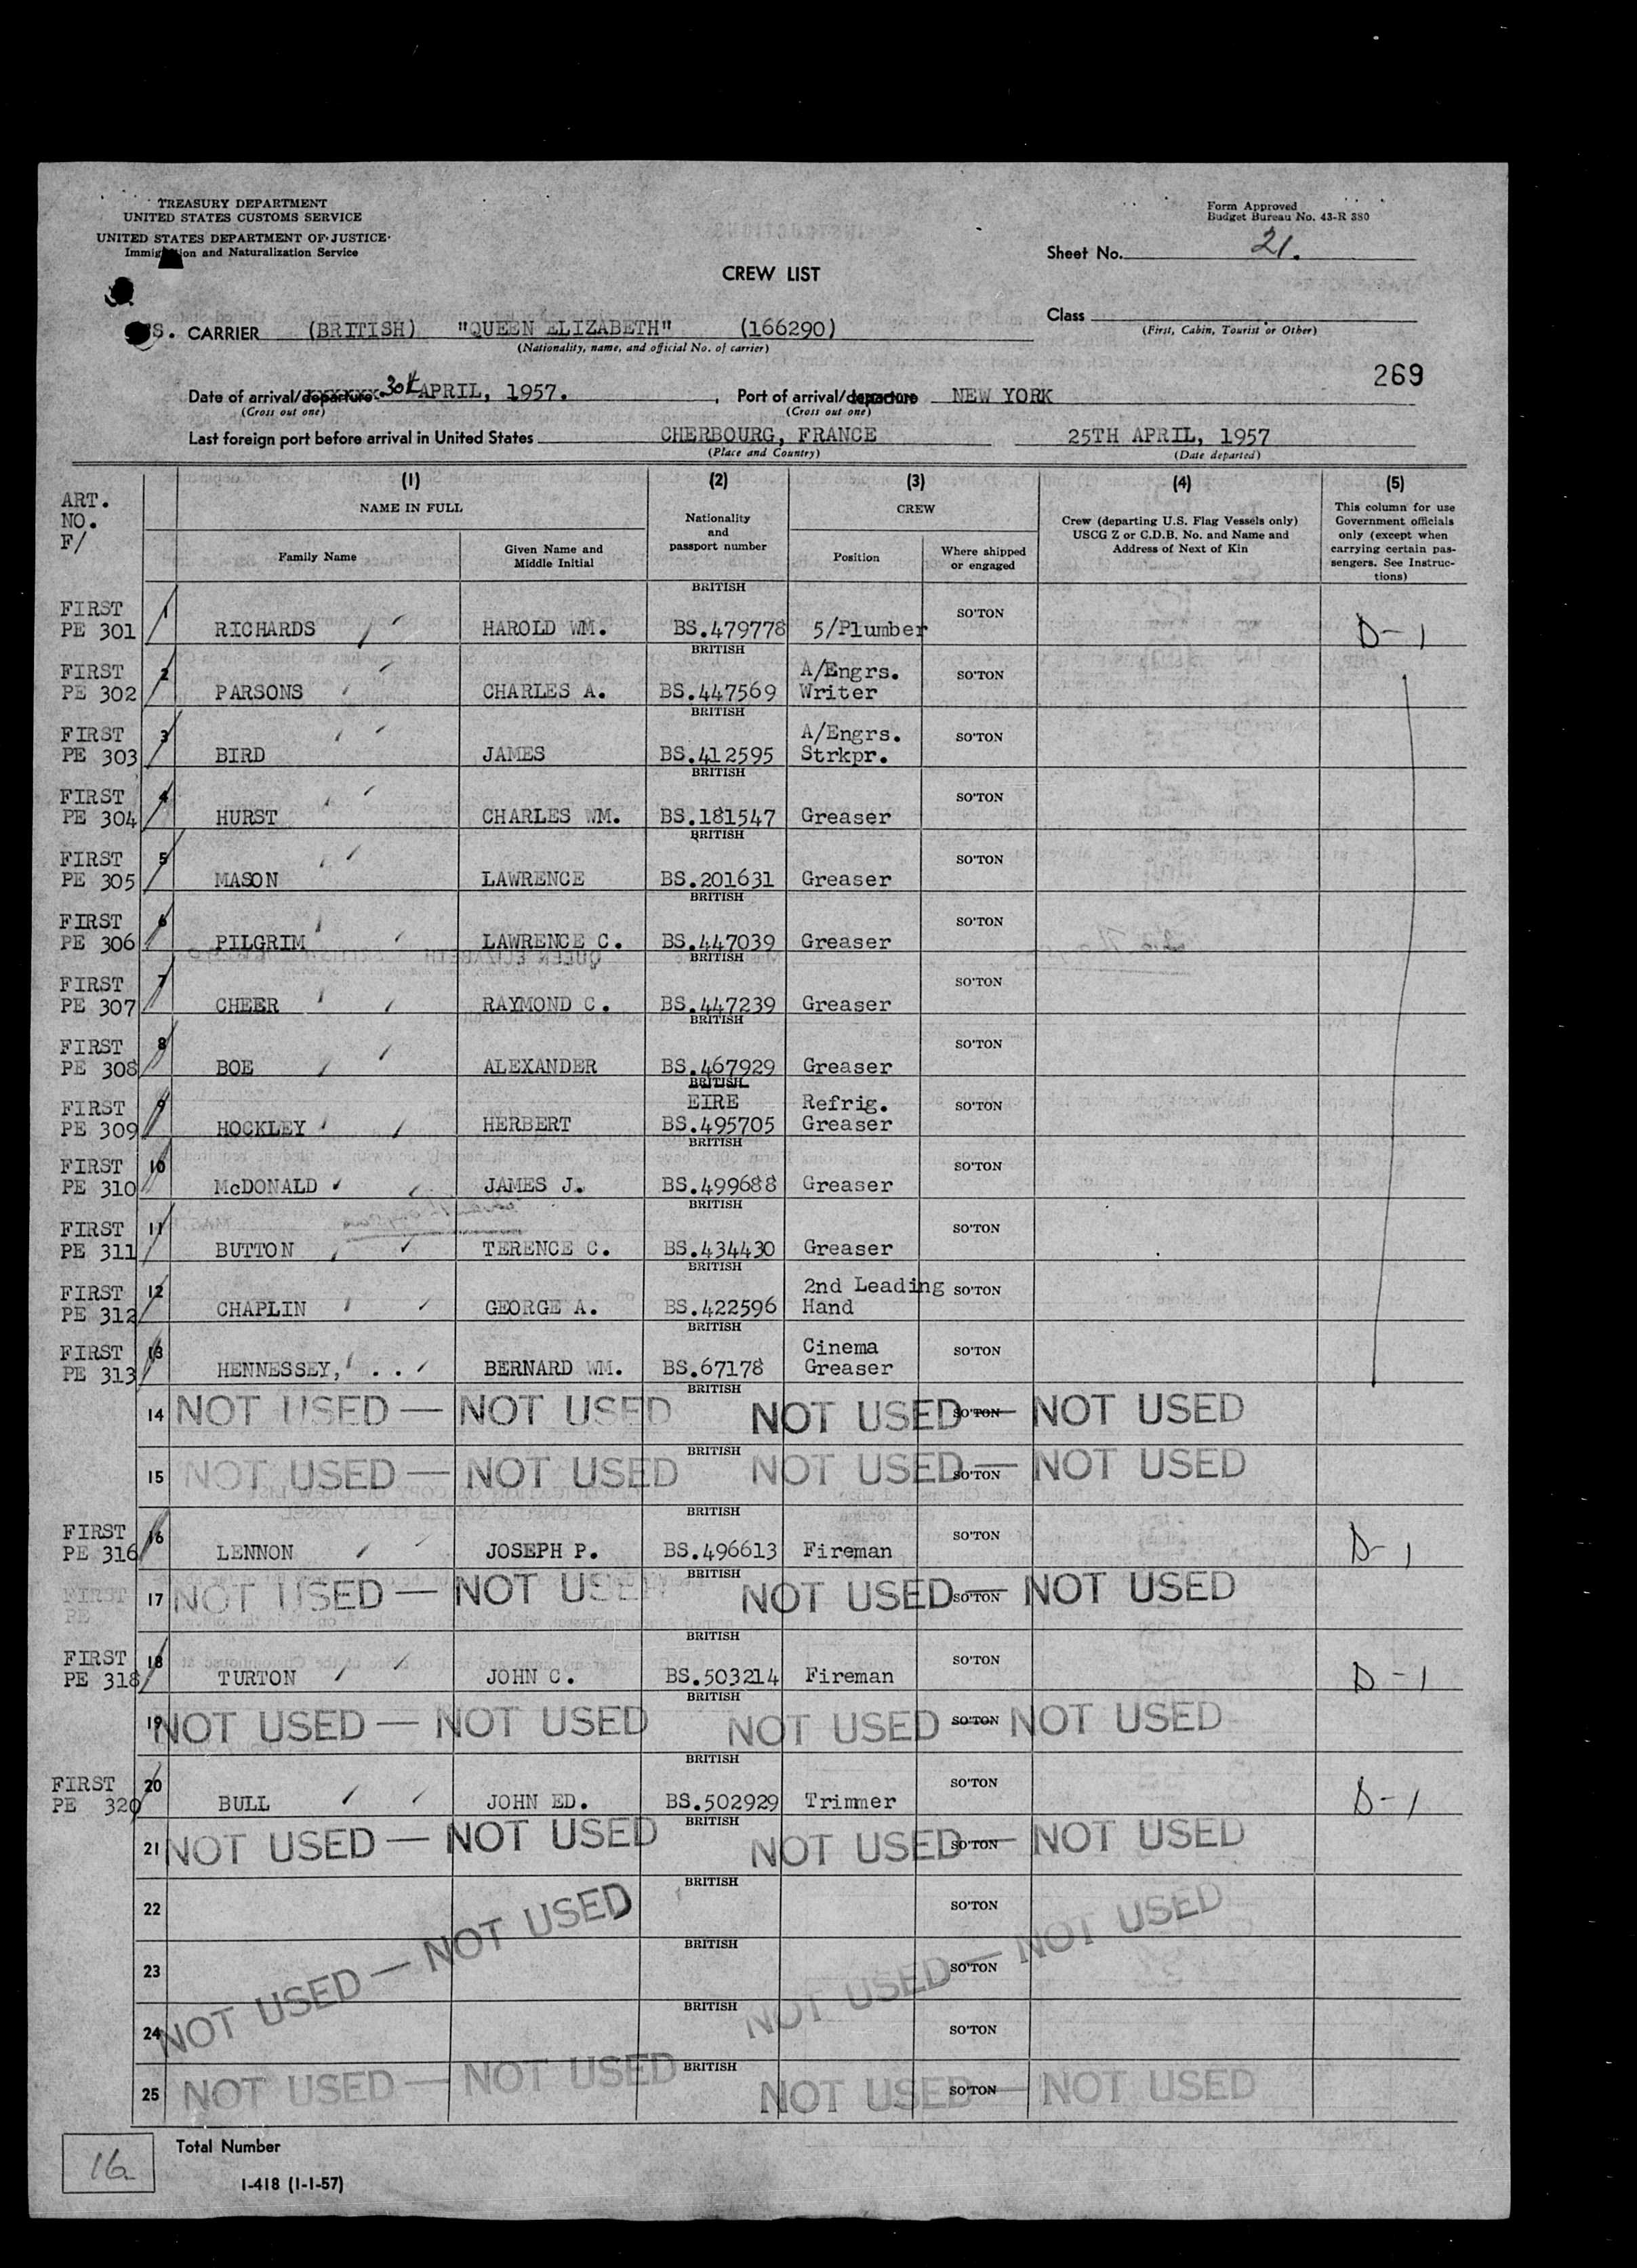 TREASURY DEPARTMENT
UNITED STATES CUSTOMS SERVICE
UNITED STATES DEPARTMENT OF JUSTICE
Immigration and Naturalization Service
Form Approved
Budget Bureau No. 43-R 380
Sheet No. 21.
CREW LIST
S. CARRIER (BRITISH) "QUEEN ELIZABETH" (166290)
(Nationality, name, and official No. of carrier)
Class
(First, Cabin, Tourist or Other)
269
Date of arrival/departure 30th APRIL, 1957. , Port of arrival/departure NEW YORK
(Cross out one) (Cross out one)
Last foreign port before arrival in United States CHERBOURG, FRANCE 25TH APRIL, 1957
(Place and Country) (Date departed)
ART.
NO.
F/
(1) (2) (3) (4) (5)
NAME IN FULL
Family Name
Given Name and
Middle Initial
Nationality
and
passport number
CREW
Position
Where shipped
or engaged
Crew (departing U.S. Flag Vessels only)
USCG Z or C.D.B. No. and Name and
Address of Next of Kin
This column for use
Government officials
only (except when
carrying certain pas-
sengers. See Instruc-
tions)
BRITISH
FIRST 1 SO'TON
PE 301 RICHARDS HAROLD WM. BS.479778 5/Plumber D-1
BRITISH
FIRST 2 A/Engrs. SO'TON
PE 302 PARSONS CHARLES A. BS.447569 Writer
BRITISH
FIRST 3 A/Engrs. SO'TON
PE 303 BIRD JAMES BS.412595 Strkpr.
BRITISH
FIRST 4 SO'TON
PE 304 HURST CHARLES WM. BS.181547 Greaser
BRITISH
FIRST 5 SO'TON
PE 305 MASON LAWRENCE BS.201631 Greaser
BRITISH
FIRST 6 SO'TON
PE 306 PILGRIM LAWRENCE C. BS.447039 Greaser
BRITISH
FIRST 7 SO'TON
PE 307 CHEER RAYMOND C. BS.447239 Greaser
BRITISH
FIRST 8 SO'TON
PE 308 BOE ALEXANDER BS.467929 Greaser
BRITISH
FIRST 9 EIRE Refrig. SO'TON
PE 309 HOCKLEY HERBERT BS.495705 Greaser
BRITISH
FIRST 10 SO'TON
PE 310 McDONALD JAMES J. BS.499688 Greaser
BRITISH
FIRST 11 SO'TON
PE 311 BUTTON TERENCE C. BS.434430 Greaser
BRITISH
FIRST 12 2nd Leading SO'TON
PE 312 CHAPLIN GEORGE A. BS.422596 Hand
BRITISH
FIRST 13 Cinema SO'TON
PE 313 HENNESSEY, BERNARD WM. BS.67178 Greaser
BRITISH
14 NOT USED — NOT USED NOT USED — SO'TON NOT USED
BRITISH
15 NOT USED — NOT USED NOT USED — SO'TON NOT USED
BRITISH
FIRST 16 SO'TON
PE 316 LENNON JOSEPH P. BS.496613 Fireman D-1
BRITISH
FIRST 17 NOT USED — NOT USED NOT USED — SO'TON NOT USED
PE
BRITISH
FIRST 18 SO'TON
PE 318 TURTON JOHN C. BS.503214 Fireman D-1
BRITISH
19 NOT USED — NOT USED NOT USED — SO'TON NOT USED
BRITISH
FIRST 20 SO'TON
PE 320 BULL JOHN ED. BS.502929 Trimmer D-1
BRITISH
21 NOT USED — NOT USED NOT USED — SO'TON NOT USED
BRITISH
22 SO'TON
BRITISH
23 NOT USED — NOT USED NOT USED — NOT USED SO'TON
BRITISH
24 SO'TON
BRITISH
25 NOT USED — NOT USED NOT USED — SO'TON NOT USED
16 Total Number
I-418 (1-1-57)